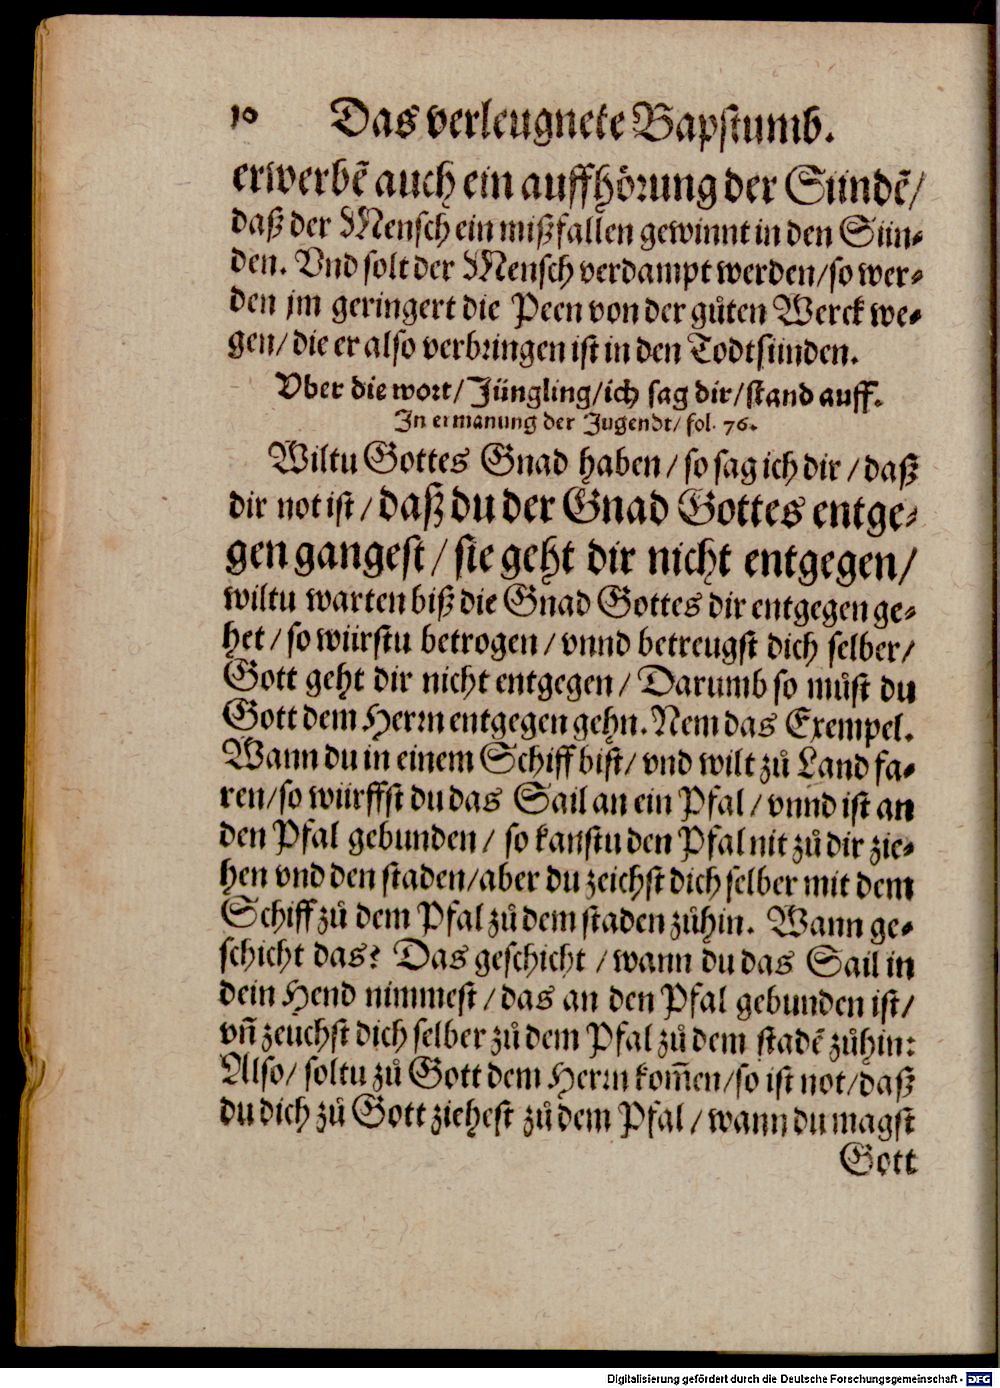 10 Das verleugnete Bapstumb.
erwerbẽ auch ein auffhörung der Sündẽ/
daß der Mensch ein mißfallen gewinnt in den Sün-
den. Vnd solt der Mensch verdampt werden/ so wer-
den jm geringert die Peen von der gůten Werck we-
gen/ die er also verbringen ist in den Todtsünden.
Vber die wort/ Jüngling/ ich sag dir/ stand auff.
In ermanung der Jugendt/ fol. 76.
Wiltu Gottes Gnad haben/ so sag ich dir/ daß
dir not ist/ daß du der Gnad Gottes entge-
gen gangest/ sie geht dir nicht entgegen/
wiltu warten biß die Gnad Gottes dir entgegen ge-
het/ so würstu betrogen/ vnnd betreugst dich selber/
Gott geht dir nicht entgegen/ Darumb so můst du
Gott dem Herrn entgegen gehn. Nem das Exempel.
Wann du in einem Schiff bist/ vnd wilt zů Land fa-
ren/ so würffst du das Sail an ein Pfal/ vnnd ist an
den Pfal gebunden/ so kanstu den Pfal nit zů dir zie-
hen vnd den staden/ aber du zeichst dich selber mit dem
Schiff zů dem Pfal zů dem staden zůhin. Wann ge-
schicht das? Das geschicht/ wann du das Sail in
dein Hend nimmest/ das an den Pfal gebunden ist/
vñ zeuchst dich selber zů dem Pfal zů dem stadẽ zůhin:
Also/ soltu zů Gott dem Herrn kom̃en/ so ist not/ daß
du dich zů Gott ziehest zů dem Pfal/ wann du magst
Gott
Digitalisierung gefördert durch die Deutsche Forschungsgemeinschaft - DFG